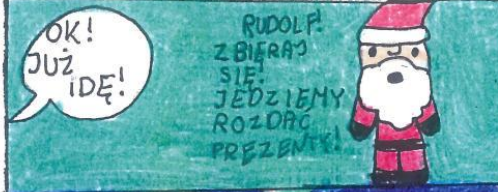 OK!
JUŻ
IDĘ!
RUDOLF!
ZBIERAJ
SIĘ!
JEDZIEMY
ROZDAĆ
PREZENTY!